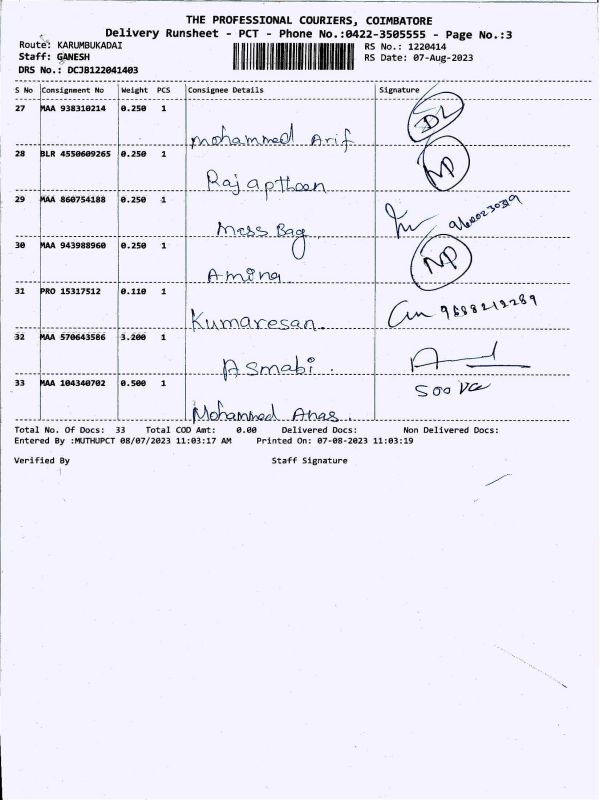 THE PROFESSIONAL COURIERS, COIMBATORE
Delivery Runsheet - PCT - Phone No.:0422-3505555 - Page No.:3
Route: KARUMBUKADAI RS No.: 1220414
Staff: GANESH RS Date: 07-Aug-2023
DRS No.: DCJB122041403
S No Consignment No Weight PCS Consignee Details Signature
27 MAA 938310214 0.250 1 DL
Mohammed Arif
28 BLR 4550609265 0.250 1 NP
29 MAA 860754188 0.250 1
Mess Bag
30 MAA 943988960 0.250 1 NP
Amina
31 PRO 15317512 0.110 1
Kumaresan.
32 MAA 570643586 3.200 1
Asmabi.
33 MAA 104340702 0.500 1 500
Mohammed Anas.
Total No. Of Docs: 33 Total COD Amt: 0.00 Delivered Docs: Non Delivered Docs:
Entered By :MUTHUPCT 08/07/2023 11:03:17 AM Printed On: 07-08-2023 11:03:19
Verified By Staff Signature